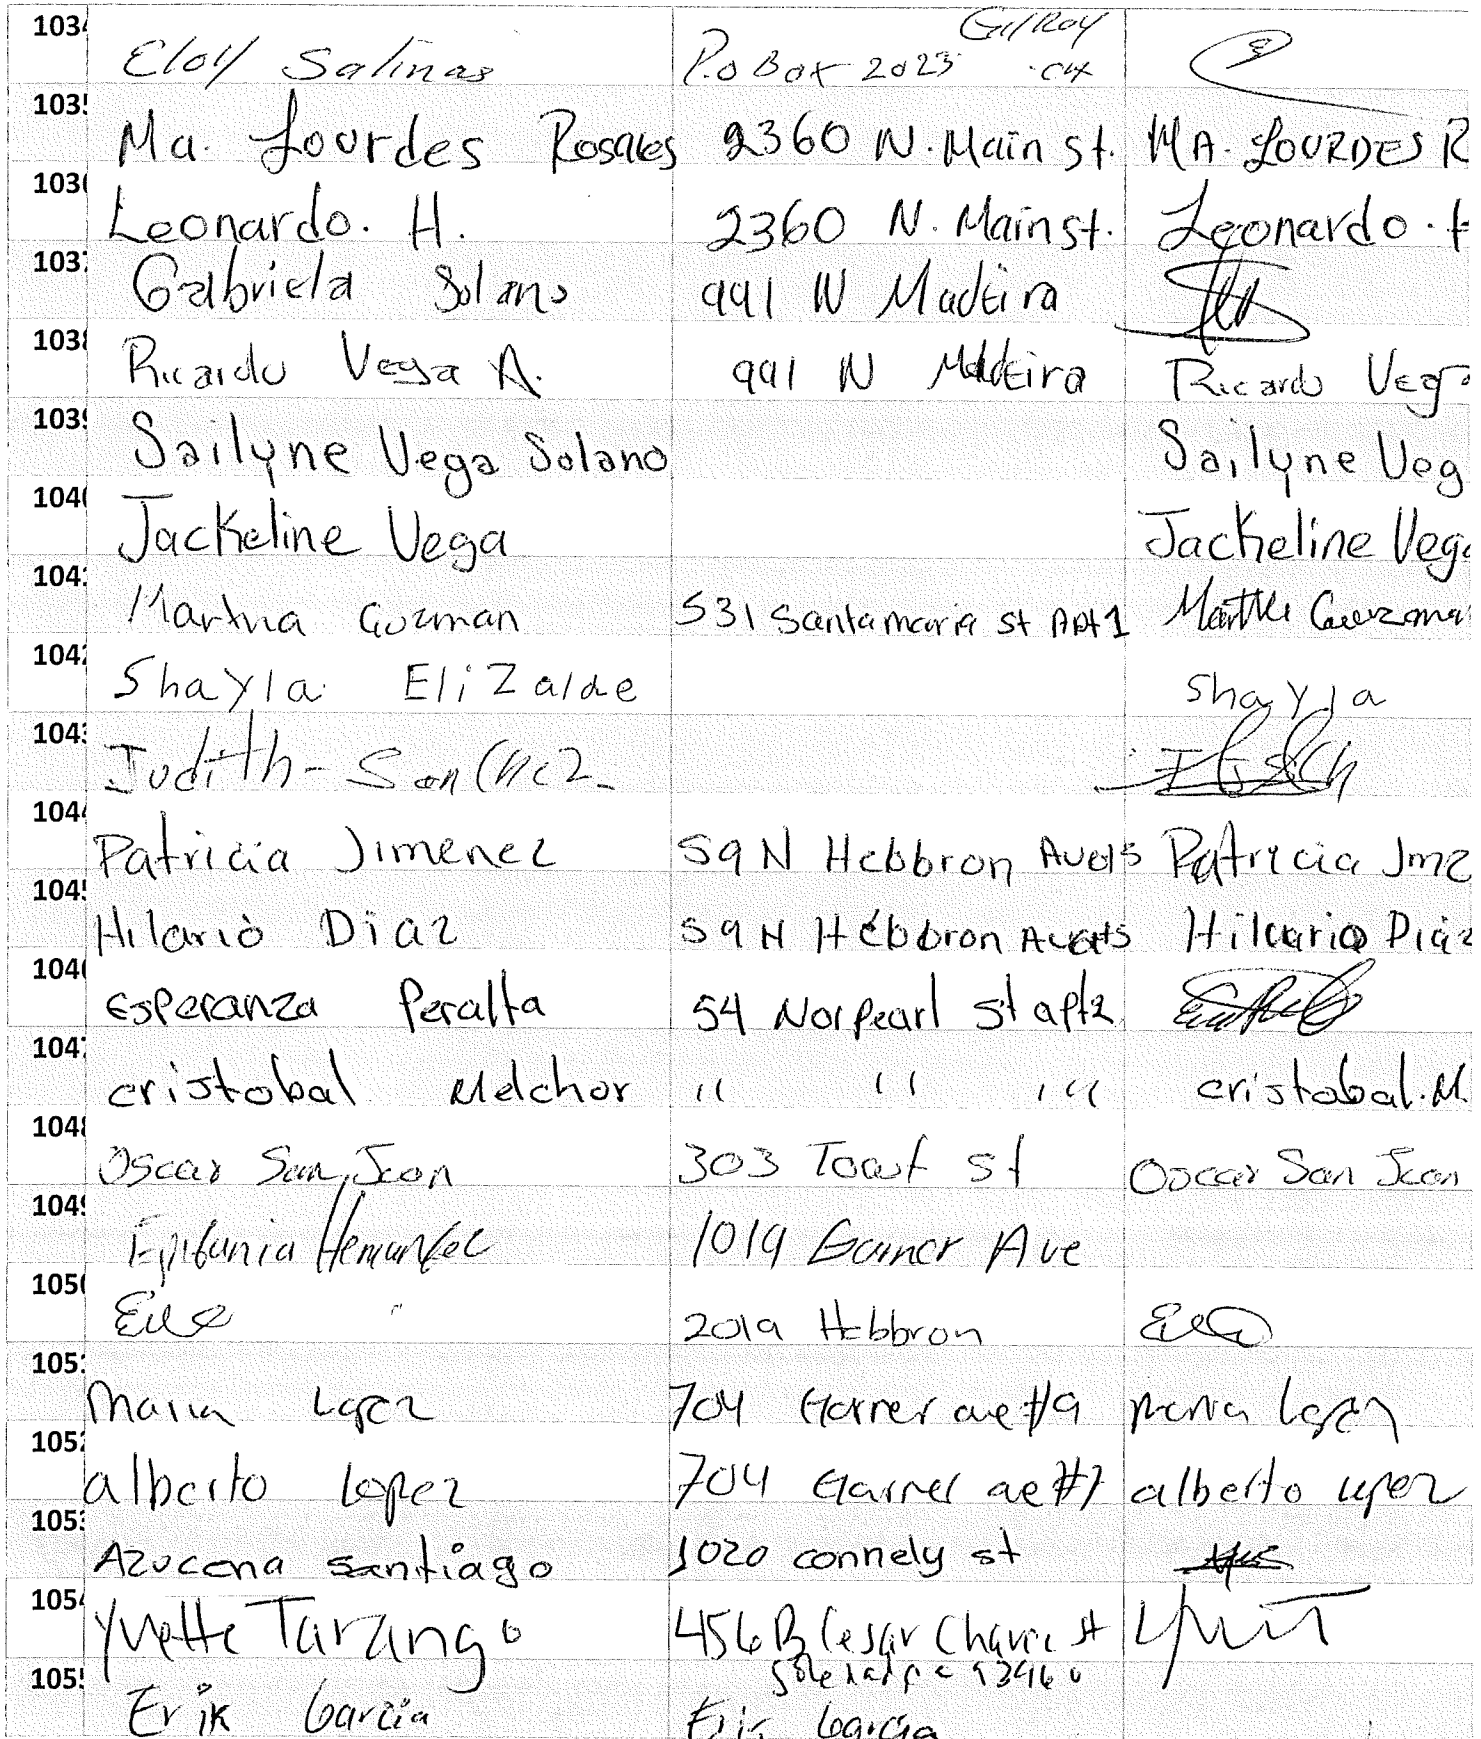 1034 Eloy Salinas P.O Box 2023 Gilroy CA
1035 Ma. Lourdes Rosales 2360 N. Main st. MA. LOURDES R
1036 Leonardo. H. 2360 N. Main st. Leonardo. H
1037 Gabriela Solano 991 N Madeira
1038 Ricardo Vega A. 991 N Madeira Ricardo Vega
1039 Sailyne Vega Solano Sailyne Veg
1040 Jackeline Vega Jackeline Vega
1041 Martha Guzman 531 Santa maria st Apt 1 Martha Guzman
1042 Shayla Elizalde Shayla
1043 Judith - Sanchez
1044 Patricia Jimenez 59 N Hebbron Ave Patricia Jmz
1045 Hilario Diaz 59 N Hebbron Ave Hilario Diaz
1046 Esperanza Peralta 54 Nor pearl st apt2
1047 cristobal Melchor " " " cristobal. M.
1048 Oscar San Juan 303 st Oscar San Juan
1049 Epifania Hernandez 1019 Garner Ave
1050 2019 Hebbron
1051 Maria Lopez 704 Garner ave #9 Maria Lopez
1052 alberto Lopez 704 Garner ave #7 alberto Lopez
1053 Azucena santiago 1020 connely st
1054 Yvette Tarango 456 B Cesar Chavez st
Soledad Ca 93960
1055 Erik Garcia Erik Garcia